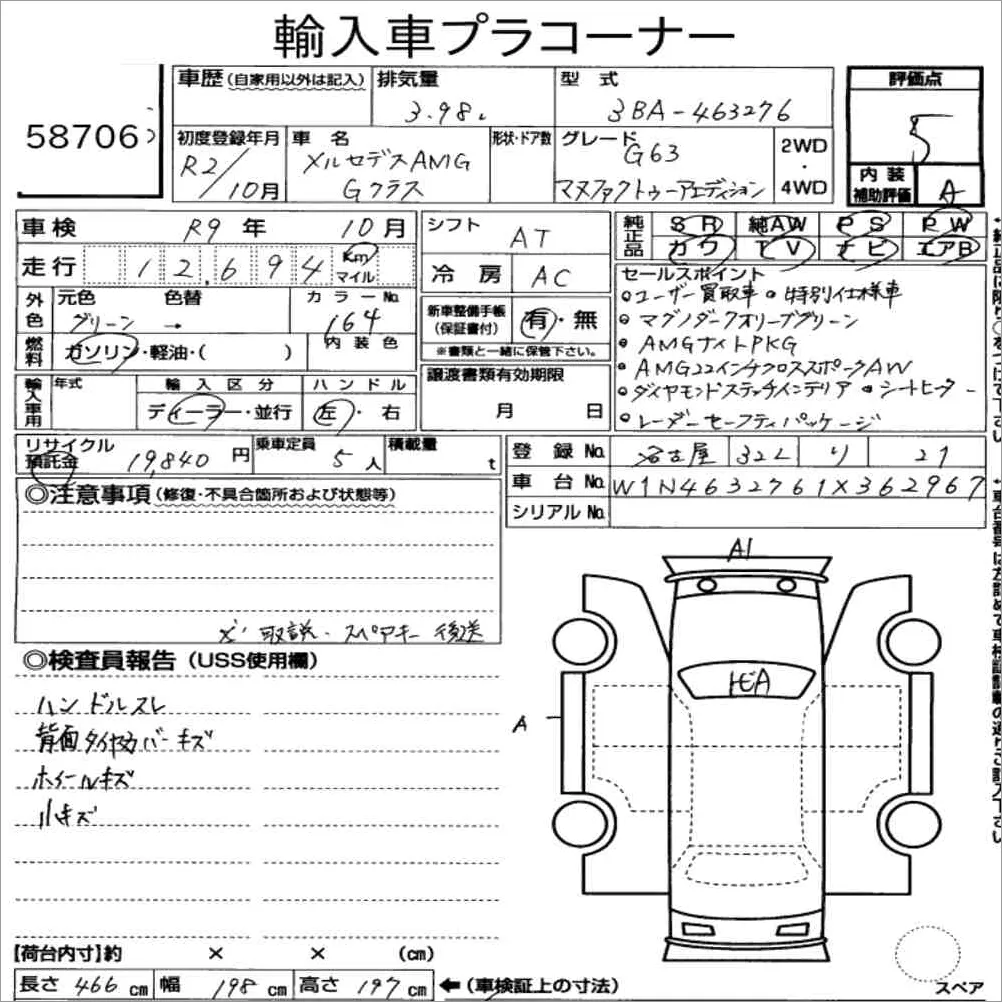 輸入車プラコーナー
58706
車歴(自家用以外は記入)
排気量 3.98ℓ
型式 3BA-463276
評価点 5
初度登録年月 R2/10月
車名 メルセデスAMG Gクラス
形状・ドア数
グレード G63 マヌファクトゥーアエディション
2WD・4WD
内装補助評価 A
車検 R9年 10月
走行 12,694 Km マイル
シフト AT
冷房 AC
純正品 SR 純AW PS PW
カワ TV ナビ エアB
外色 元色 グリーン → 色替
カラーNo. 164
内装色
燃料 ガソリン・軽油・( )
新車整備手帳(保証書付) 有・無
※書類と一緒に保管下さい。
セールスポイント
ユーザー買取車 特別仕様車
マグノダークオリーブグリーン
AMGナイトPKG
AMG22インチクロススポークAW
ダイヤモンドステッチインテリア シートヒーター
レーダーセーフティパッケージ
輸入車用 年式
輸入区分 ディーラー・並行
ハンドル 左・右
譲渡書類有効期限 月 日
リサイクル預託金 19,840円
乗車定員 5人
積載量 t
登録No. 名古屋 322 り 21
車台No. W1N4632761X362967
シリアルNo.
◎注意事項(修復・不具合箇所および状態等)
取説・スペアキー後送
◎検査員報告(USS使用欄)
ハンドルスレ
背面タイヤカバーキズ
ホイールキズ
小キズ
A1
A
【荷台内寸】約 × × (cm)
長さ 466cm 幅 198cm 高さ 197cm ←(車検証上の寸法)
スペア